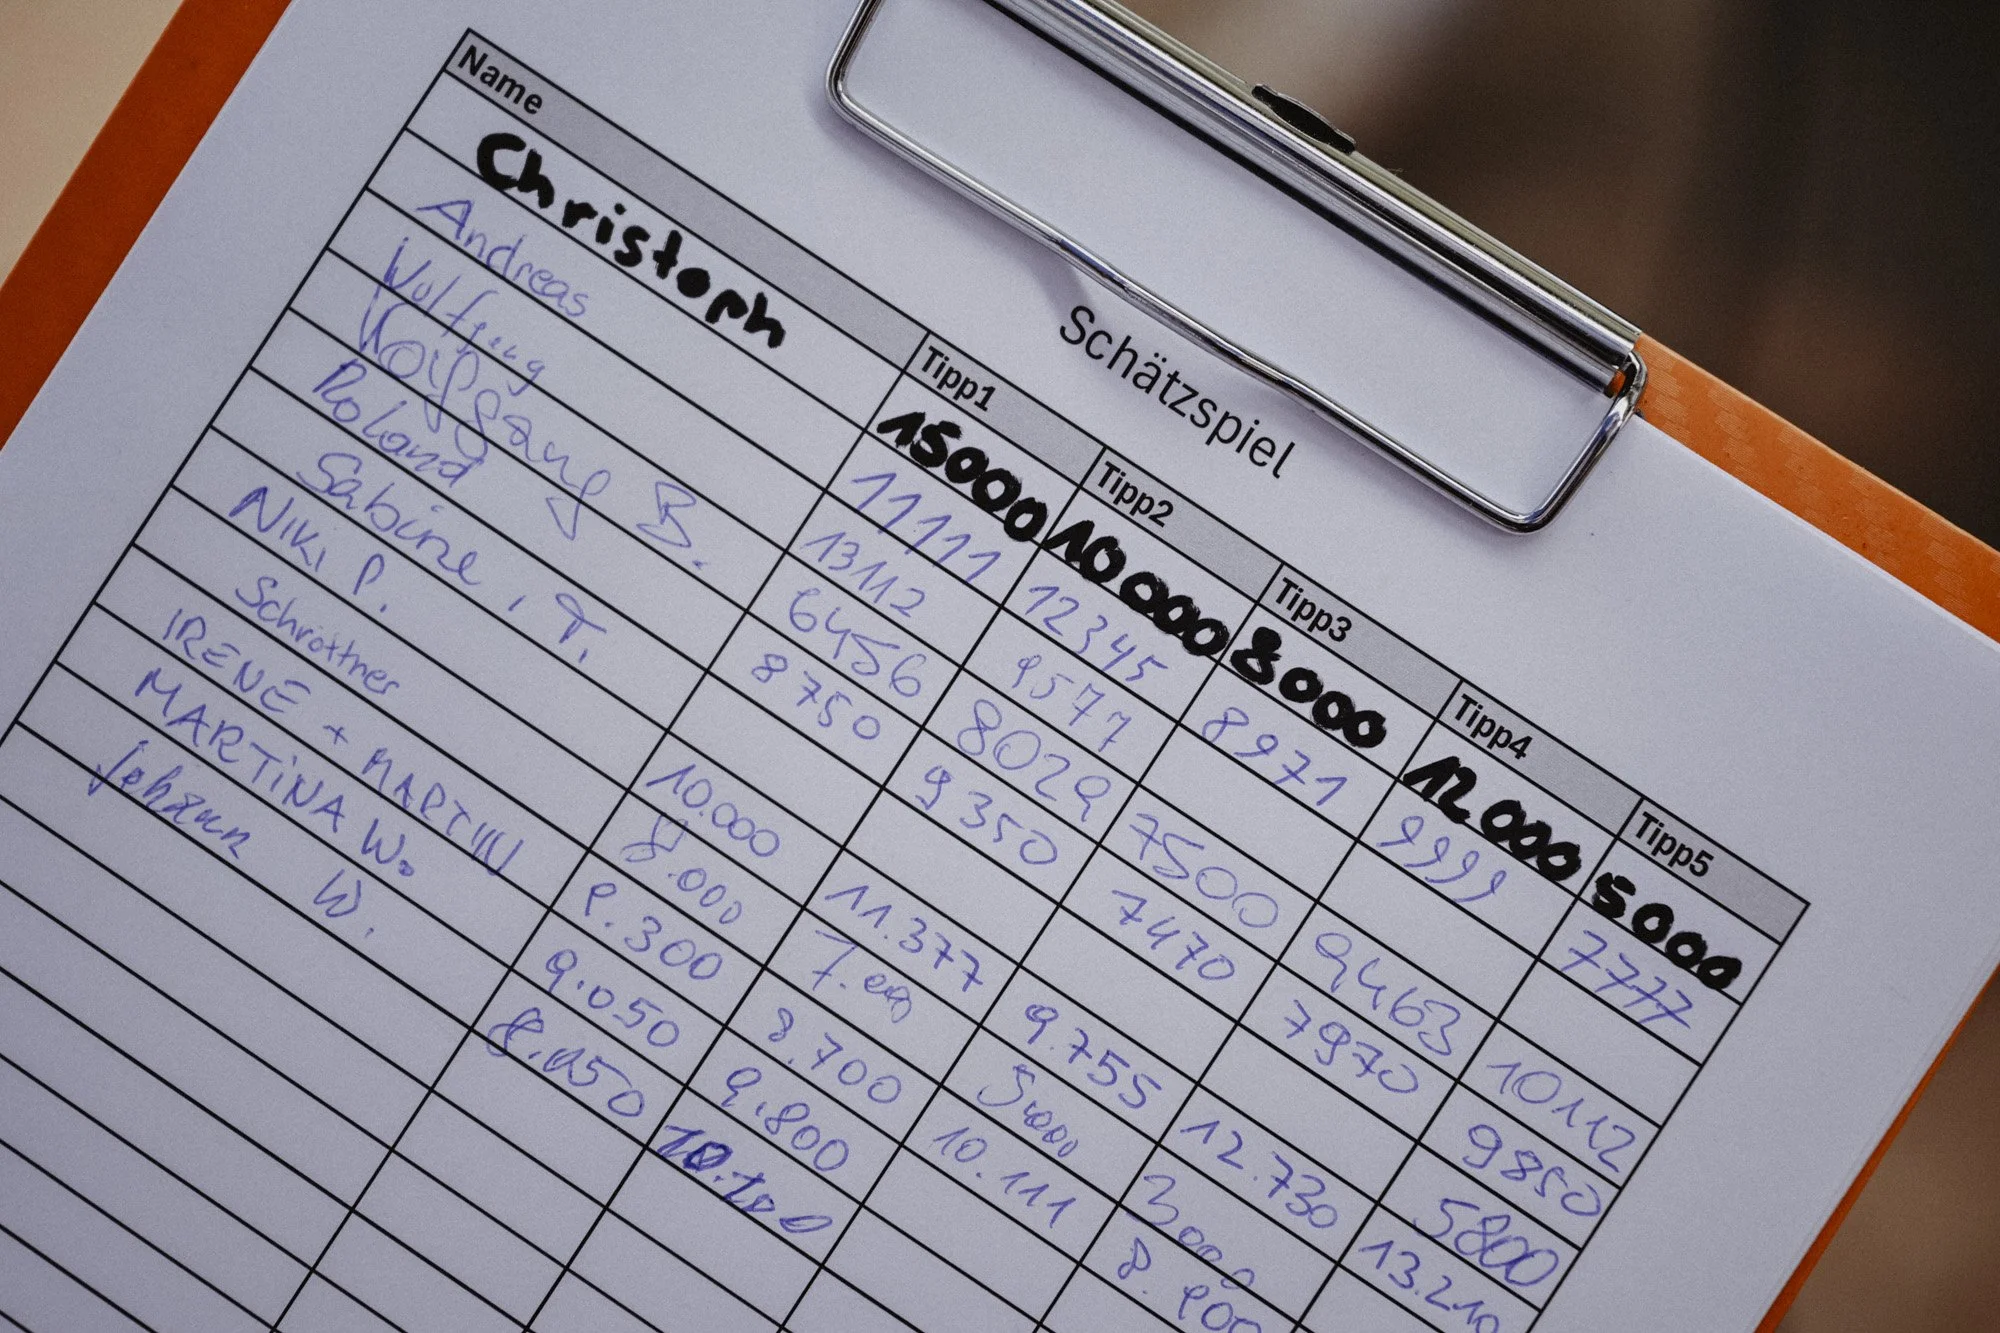 Schätzspiel
Name Tipp1 Tipp2 Tipp3 Tipp4 Tipp5
Christoph 15000 10000 8000 12000 5000
Andreas 11111 12345 8971 9999 7777
Wolfgang 13112 9577
Wolfgang B. 6456 8029 7500 9463 10112
Roland 8750 9350 7470 7970 9850
Sabine T. 5800
Niki P. 10.000 11.377 9.755 12.730 13.210
Schröttner 8.000 7.000 5000 3000
IRENE + MARTIN 8.300 8.700 10.111 8.900
MARTINA W. 9.050 9.800
Johann W. 8.050